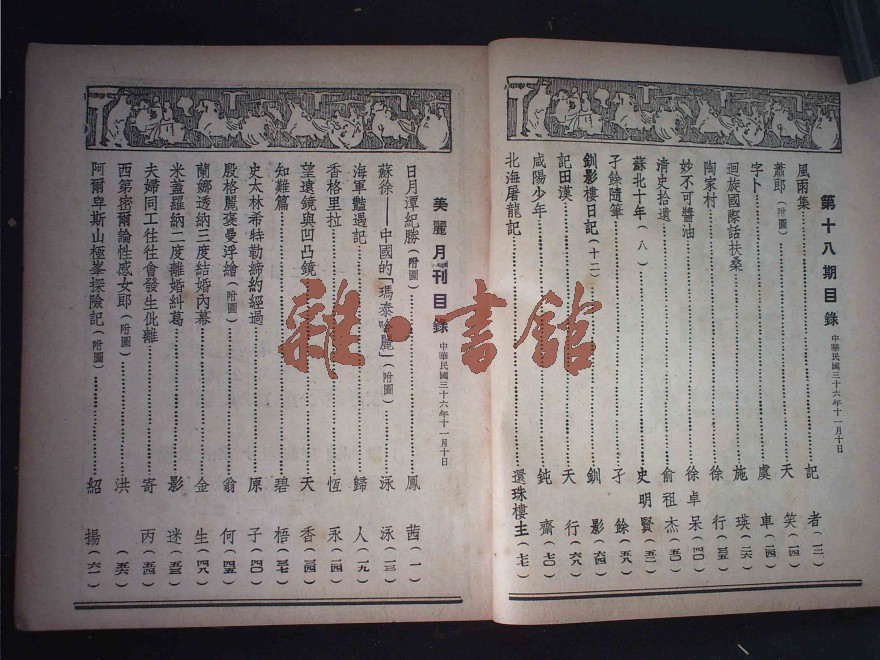 第十八期目錄 中華民國三十六年十一月十日
風雨集 記者(一二)
蕭郎(附圖) 天笑(一四)
字卜 虞車(二四)
迴旋國際話扶桑 施瑛(二六)
陶家村 徐行
妙不可醬油 徐卓呆(四〇)
清史拾遺 俞祖杰(五〇)
蘇北十年(八) 史明賢(五二)
孑餘隨筆 孑餘(五八)
釧影樓日記(十二) 釧影(六四)
記田漢 天行(六八)
咸陽少年 鈍齋(七〇)
北海屠龍記 還珠樓主(七七)
美麗月刊目錄 中華民國三十六年十一月十日
日月潭紀勝(附圖) 鳳茜(一)
蘇徐——中國的「瑪泰哈麗」(附圖) 泳泳
海軍豔遇記 歸人(一九)
香格里拉 恆永
望遠鏡與凹凸鏡 天香
知難篇 碧梧(三七)
史太林希特勒締約經過 原子(四〇)
殷格麗褒曼浮繪(附圖) 翁何(四五)
蘭娜透納三度結婚內幕 金生(四八)
米蓋羅納二度離婚糾葛 影迷
夫婦同工往往會發生仳離 寄丙(五四)
西第密爾論性感女郎(附圖) 洪(五六)
阿爾卑斯山極峯探險記(附圖) 紹揚(六一)
雜·書館